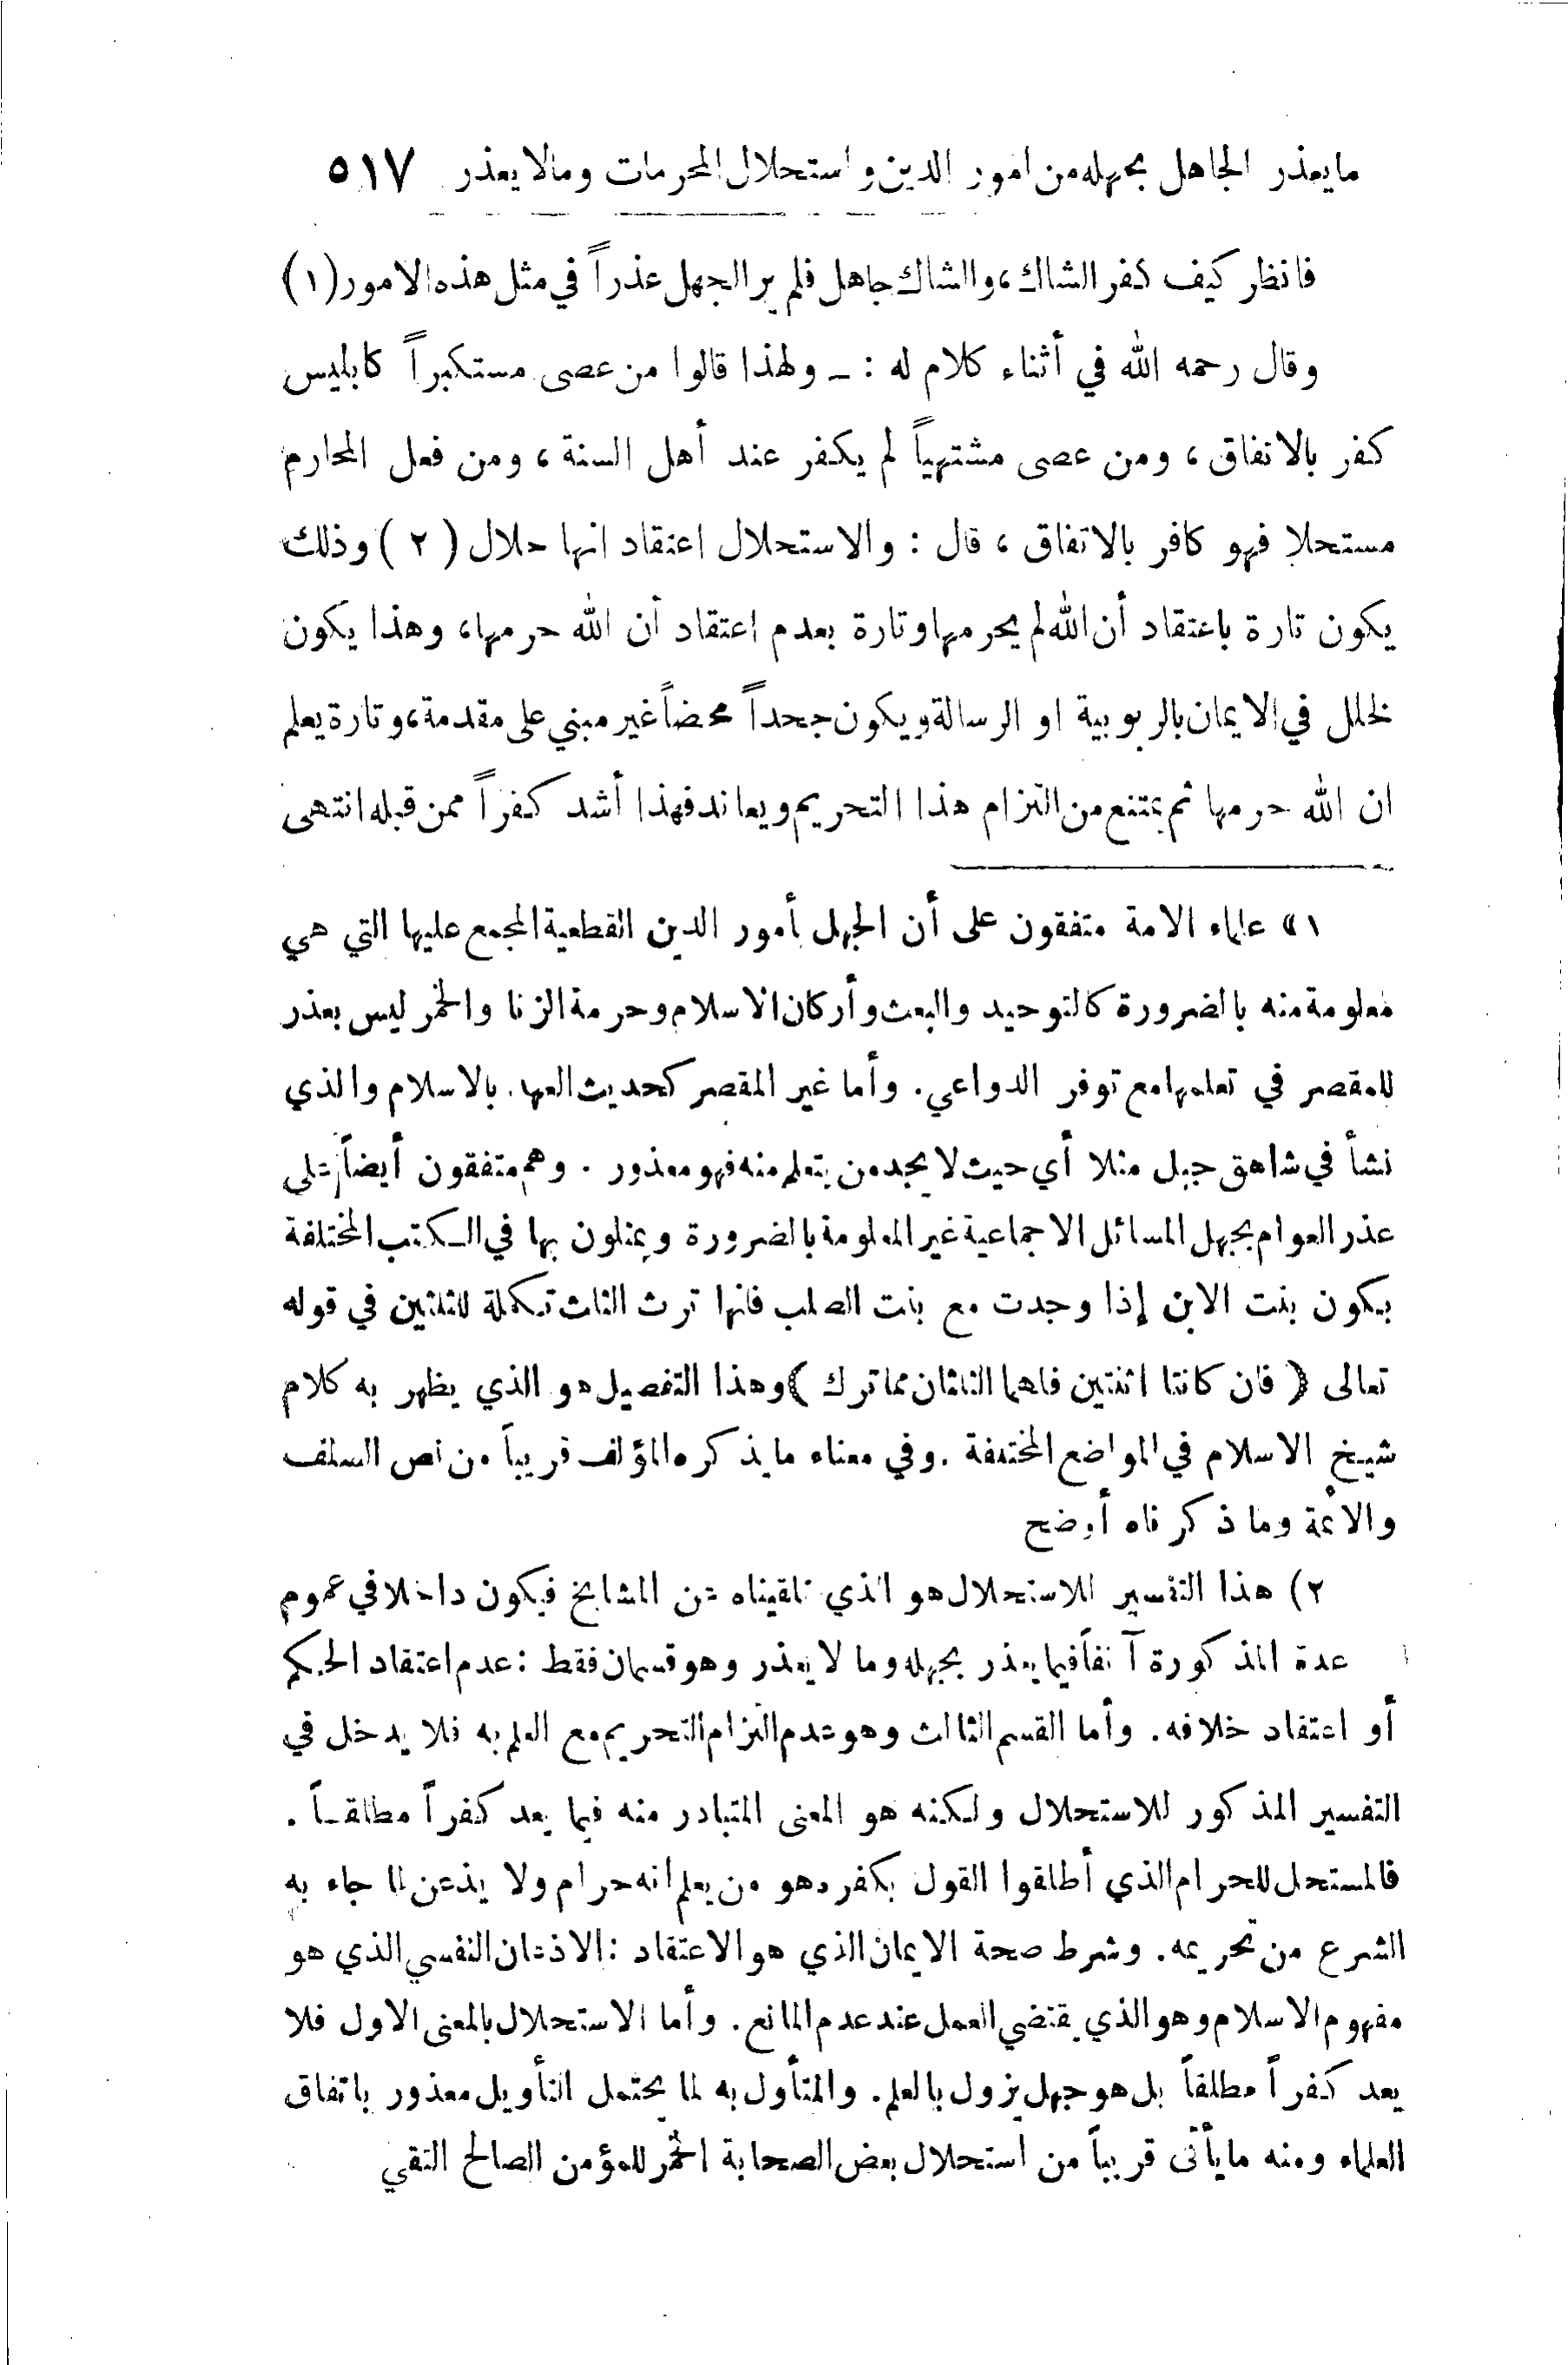 مايعذر الجاهل بجهله من امور الدين واستحلال المحرمات ومالا يعذر ٥١٧
فانظر كيف كفر الشاك، والشاك جاهل فلم ير الجهل عذراً في مثل هذه الامور (١)
وقال رحمه الله في أثناء كلام له : ــ ولهذا قالوا من عصى مستكبراً كابليس
كفر بالاتفاق، ومن عصى مشتهياً لم يكفر عند أهل السنة، ومن فعل المحارم
مستحلا فهو كافر بالاتفاق، قال : والاستحلال اعتقاد انها حلال (٢) وذلك
يكون تارة باعتقاد أن الله لم يحرمها وتارة بعدم اعتقاد أن الله حرمها، وهذا يكون
لخلل في الايمان بالربوبية او الرسالة ويكون جحداً محضاً غير مبني على مقدمة، وتارة يعلم
ان الله حرمها ثم يمتنع من التزام هذا التحريم ويعاند فهذا أشد كفراً ممن قبله انتهى
١» علماء الامة متفقون على أن الجهل بأمور الدين القطعية المجمع عليها التي هي
معلومة منه بالضرورة كالتوحيد والبعث وأركان الاسلام وحرمة الزنا والخمر ليس بعذر
للمقصر في تعلمها مع توفر الدواعي. وأما غير المقصر كحديث العهد بالاسلام والذي
نشأ في شاهق جبل مثلا أي حيث لا يجد من يتعلم منه فهو معذور . وهم متفقون أيضاً على
عذر العوام بجهل المسائل الاجماعية غير المعلومة بالضرورة ويمثلون بها في الكتب المختلفة
بكون بنت الابن إذا وجدت مع بنت الصلب فانها ترث الثلث تكملة للثلثين في قوله
تعالى ( فان كانتا اثنتين فلهما الثلثان مما ترك ) وهذا التفصيل هو الذي يظهر به كلام
شيخ الاسلام في المواضع المختلفة . وفي معناه ما يذكره المؤلف قريباً من نص السلف
والائمة وما ذكرناه أوضح
٢) هذا التفسير للاستحلال هو الذي تلقيناه عن المشايخ فيكون داخلا في عموم
عدة المذكورة آنفاً فيما يعذر بجهله وما لا يعذر وهو قسمان فقط : عدم اعتقاد الحكم
أو اعتقاد خلافه. وأما القسم الثالث وهو عدم التزام التحريم مع العلم به فلا يدخل في
التفسير المذكور للاستحلال ولكنه هو المعنى المتبادر منه فيما يعد كفراً مطلقاً .
فالمستحل للحرام الذي أطلقوا القول بكفره هو من يعلم انه حرام ولا يذعن لما جاء به
الشرع من تحريمه. وشرط صحة الايمان الذي هو الاعتقاد : الاذعان النفسي الذي هو
مفهوم الاسلام وهو الذي يقتضي العمل عند عدم المانع. وأما الاستحلال بالمعنى الاول فلا
يعد كفراً مطلقاً بل هو جهل يزول بالعلم. والمتأول به لما يحتمل التأويل معذور باتفاق
العلماء ومنه ما يأتى قريباً من استحلال بعض الصحابة الخمر للمؤمن الصالح التقي